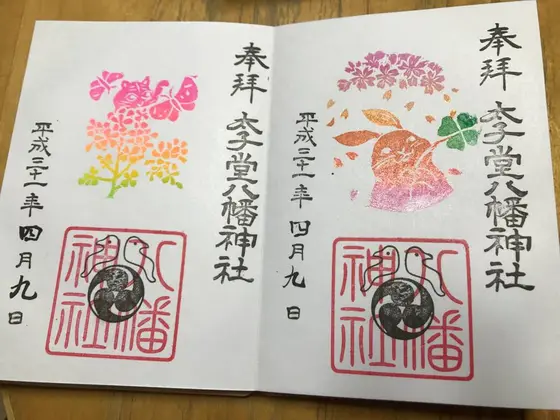 奉拝 太子堂八幡神社
平成三十一年四月九日
八幡
神社
奉拝 太子堂八幡神社
平成三十一年四月九日
八幡
神社